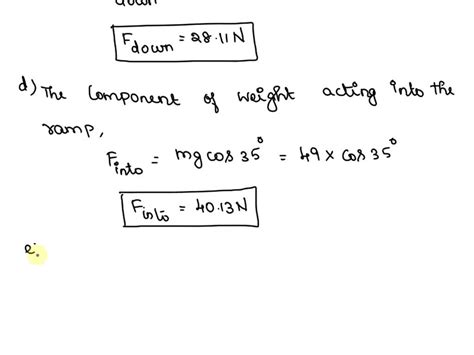 down
F down = 28.11N
d) The component of weight acting into the
ramp,
F into = mg cos 35° = 49 × cos 35°
F into = 40.13N
e.